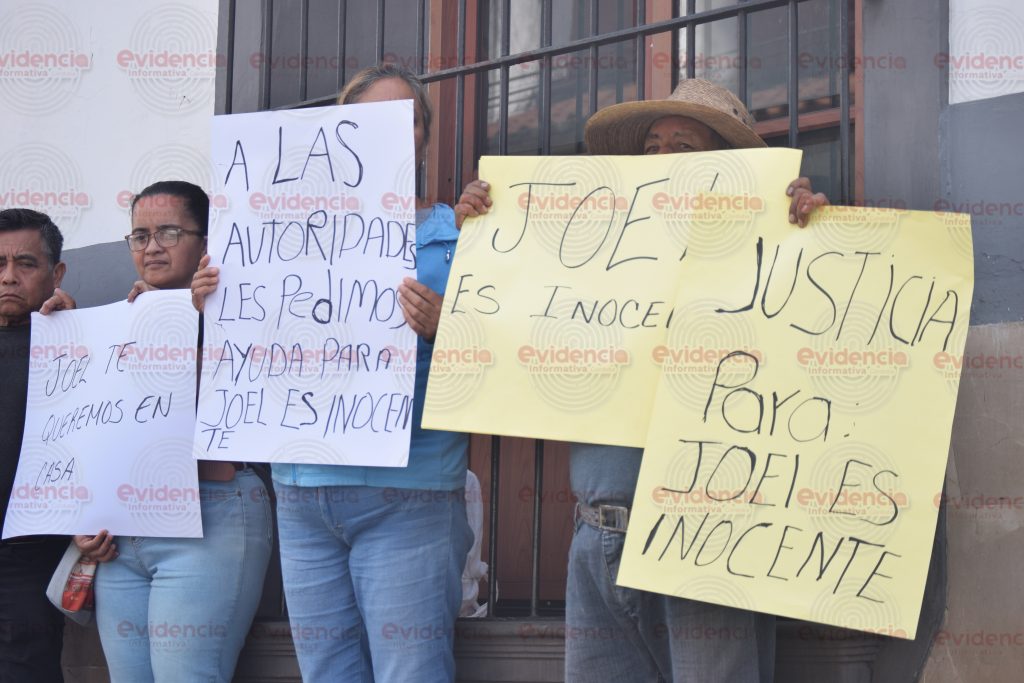 JOEL TE
QUEREMOS EN
CASA
A LAS
AUTORIDADES
LES PEDIMOS
AYUDA PARA
JOEL ES INOCEN
TE
JOEL
ES INOCEN
JUSTICIA
Para:
JOEl ES
INOCENTE
evidencia
informativa